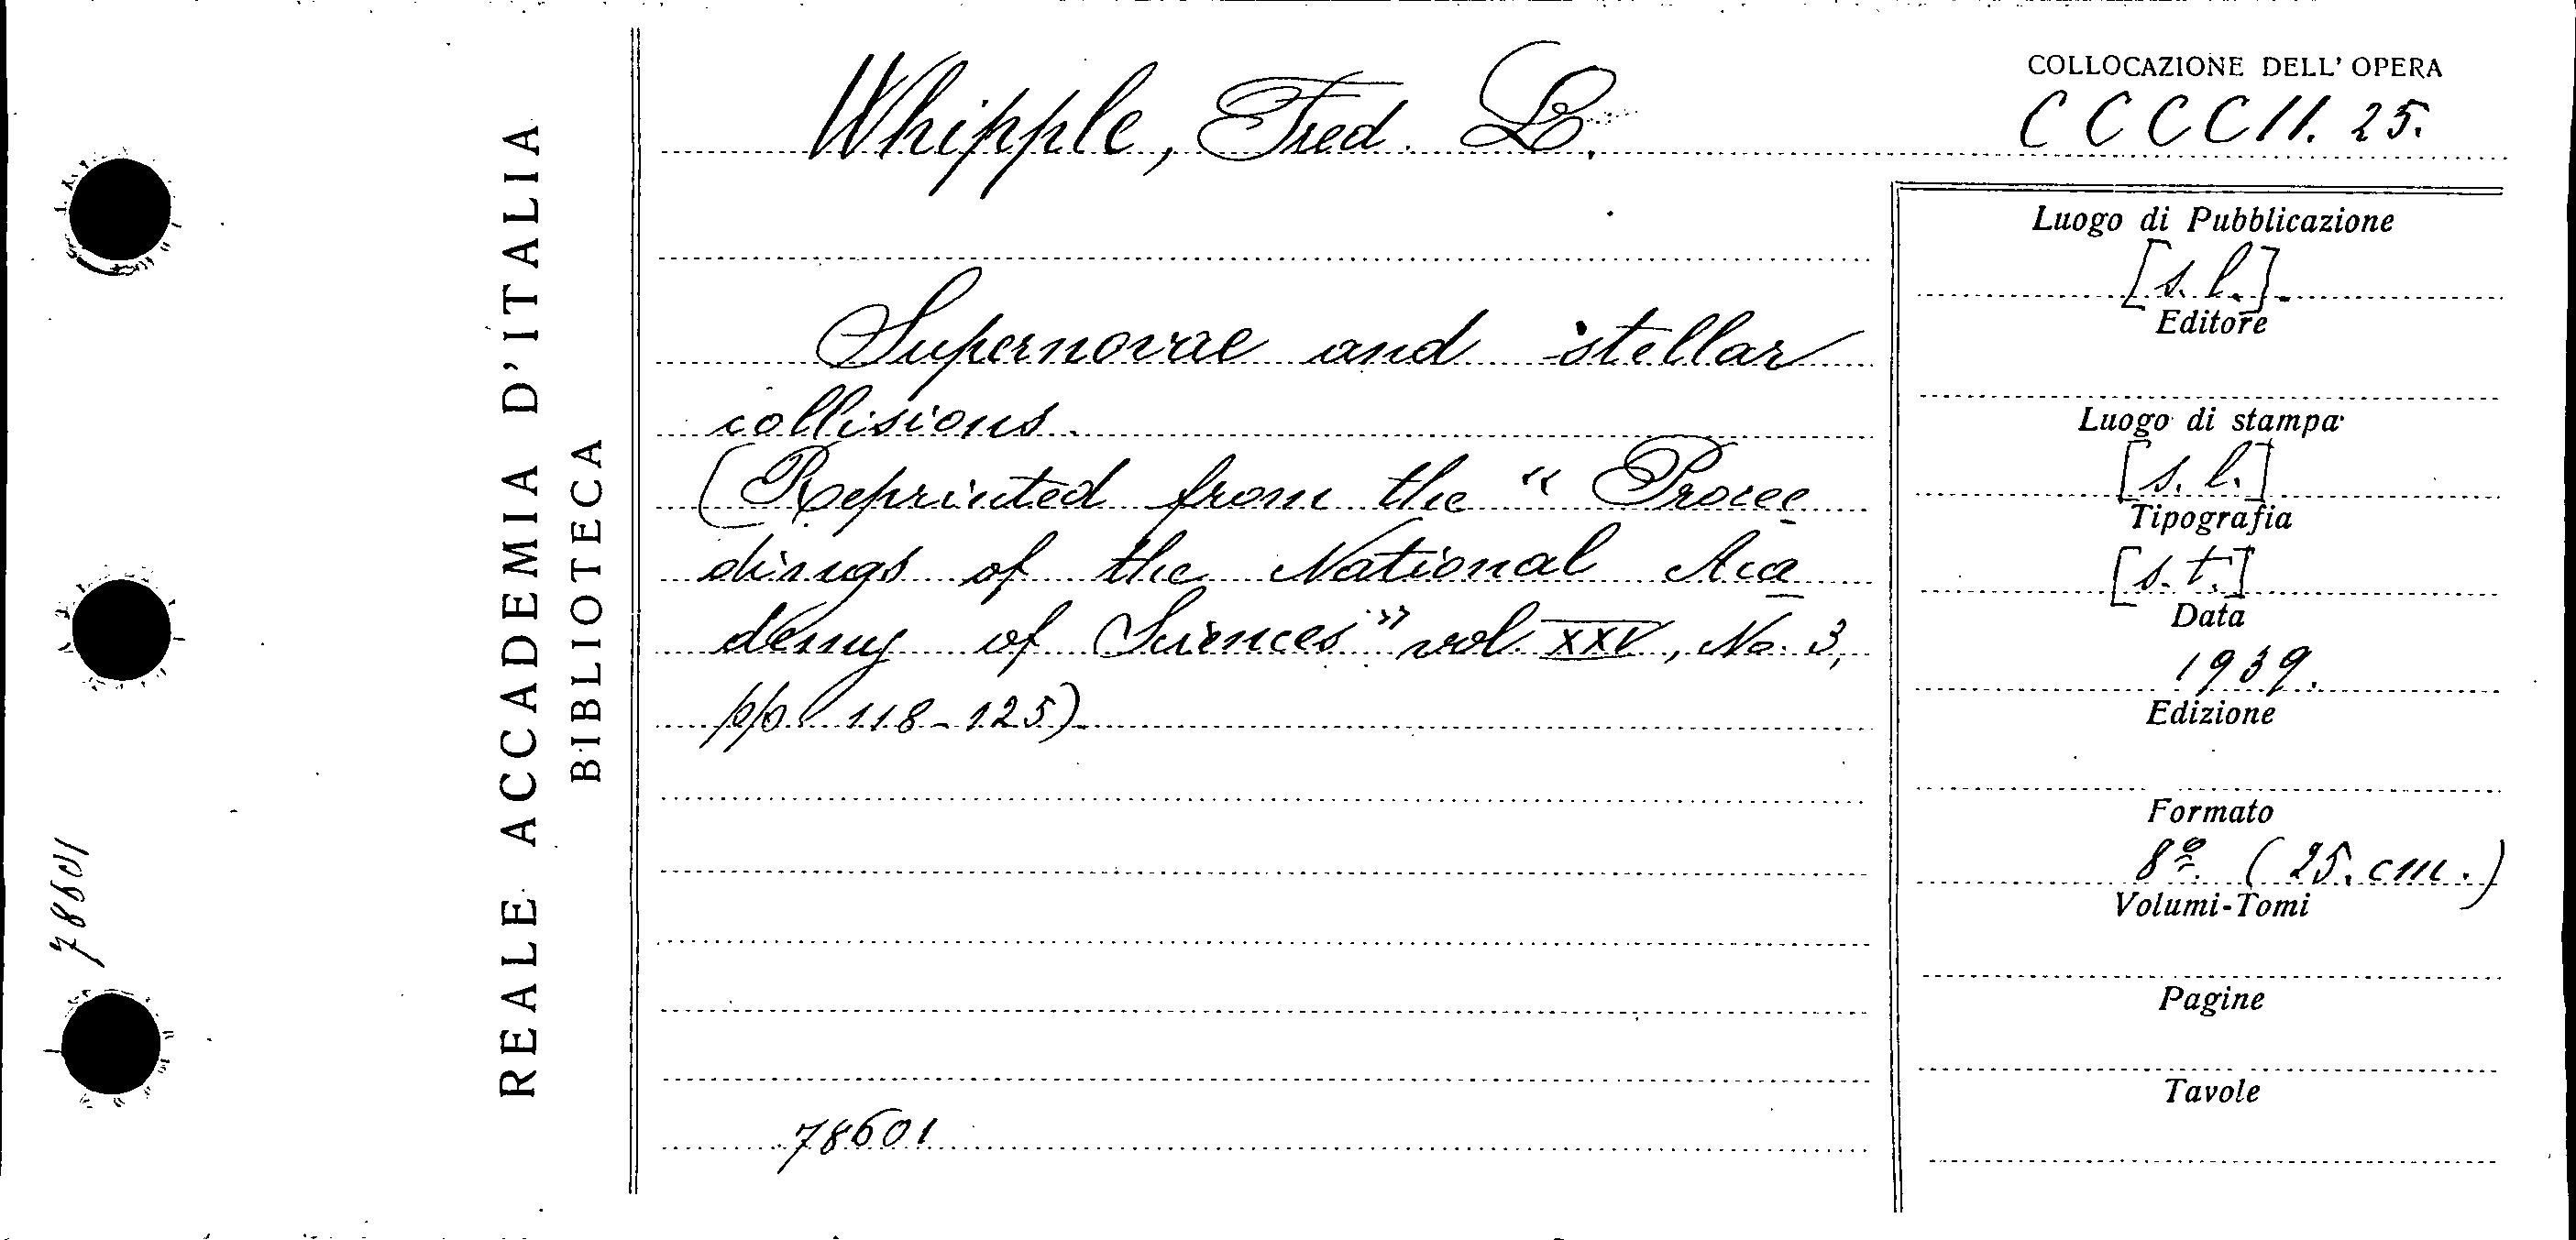 REALE ACCADEMIA D'ITALIA
BIBLIOTECA
78601
Whipple, Fred. L.
COLLOCAZIONE DELL' OPERA
CCCCII. 25.
Supernovae and stellar
collisions.
(Reprinted from the “Procee
dings of the National Aca
demy of Sciences” vol. XXV, No. 3,
pp. 118-125).
78601
Luogo di Pubblicazione
[s. l.].
Editore
Luogo di stampa
[s. l.]
Tipografia
[s. t.]
Data
1939.
Edizione
Formato
8º. (25. cm.)
Volumi-Tomi
Pagine
Tavole